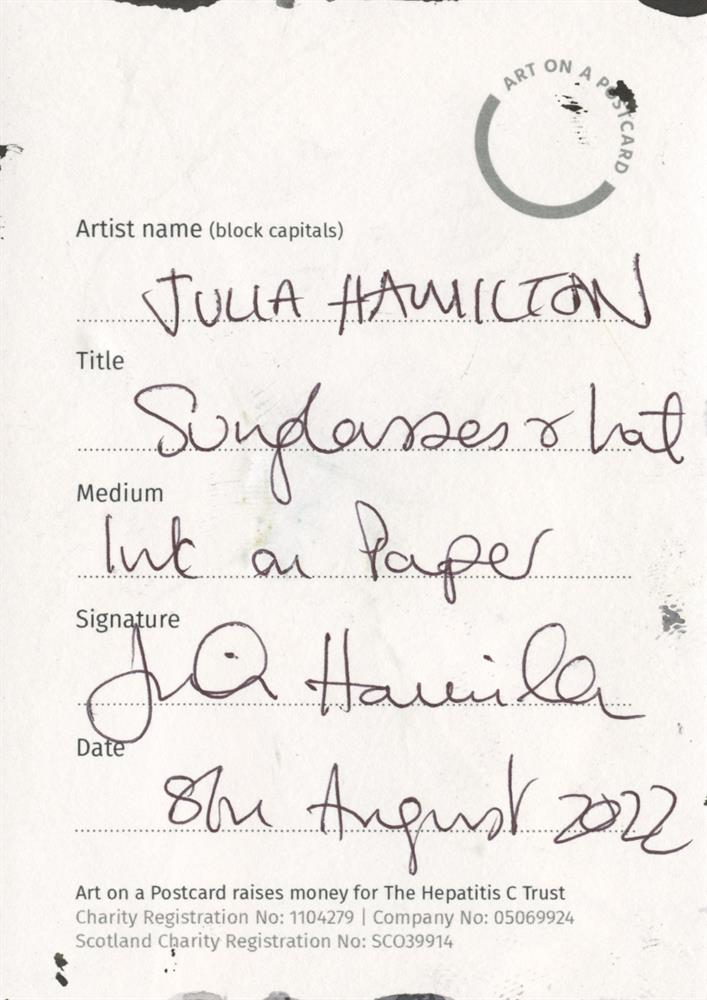 ART ON A POSTCARD
Artist name (block capitals)
JULIA HAMILTON
Title
Sunglasses & hat
Medium
Ink on Paper
Signature
Julia Hamilton
Date
8th August 2022
Art on a Postcard raises money for The Hepatitis C Trust
Charity Registration No: 1104279 | Company No: 05069924
Scotland Charity Registration No: SCO39914